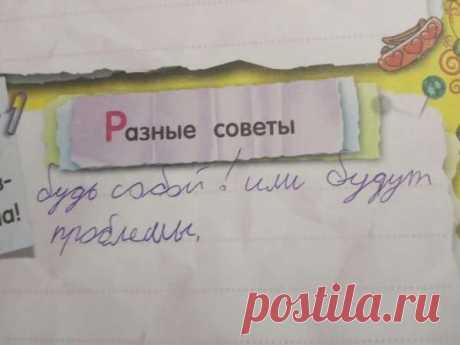 Разные советы
з-
а!
будь собой! или будут
проблемы.
postila.ru